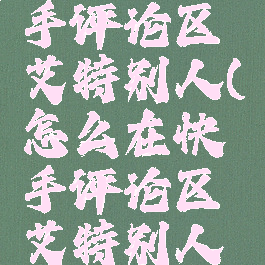 手评论区
艾特别人(
怎么在快
手评论区
艾特别人